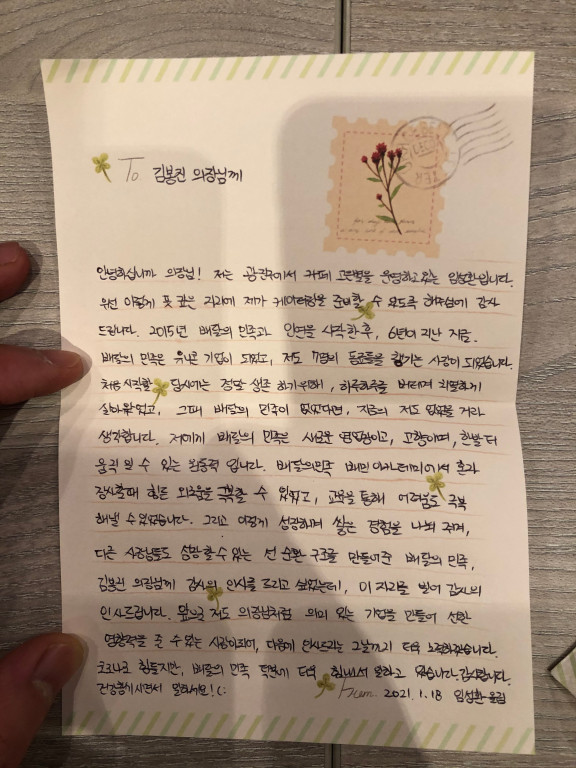 To 김봉진 의장님께
안녕하십니까 의장님! 저는 광진구에서 카페 고운별을 운영하고있는 임성환입니다.
우선 이렇게 뜻 깊은 자리에 제가 케이터링을 준비할 수 있도록 해주심에 감사
드립니다. 2015년 배달의 민족과 인연을 시작한 후, 6년이 지난 지금.
배달의 민족은 유니콘 기업이 되었고, 저도 7명의 동료들을 챙기는 사장이 되었습니다.
처음 시작할 당시에는 정말 생존 하기위해, 하루하루를 버티며 치열하게
살아왔었고, 그때 배달의 민족이 없었다면, 지금의 저도 없었을 거라
생각합니다. 저에게 배달의 민족은 새로운 영업장이고, 고향이며, 한발 더
움직일 수 있는 원동력 입니다. 배달의민족 배민아카데미에서 혼자
장사할때 힘든 외로움을 극복할 수 있었고, 교육을 통해 어려움도 극복
해낼 수 있었습니다. 그리고 이렇게 성장하며 쌓은 경험을 나눠 주며,
다른 사장님들도 성장할 수 있는 선 순환 구조를 만들어준 배달의 민족,
김봉진 의장님께 감사의 인사를 드리고 싶었는데, 이 자리를 빌어 감사의
인사드립니다. 앞으로 저도 의장님처럼 의미 있는 기업을 만들어 선한
영향력을 줄 수 있는 사람이되어, 다음에 인사드리는 그날까지 더욱 노력하겠습니다.
코로나로 힘들지만, 배달의 민족 덕분에 더욱 힘내서 일하고 있습니다. 감사합니다.
건강챙기시면서 일하세요! (:
From. 2021. 1. 18 임성환 올림